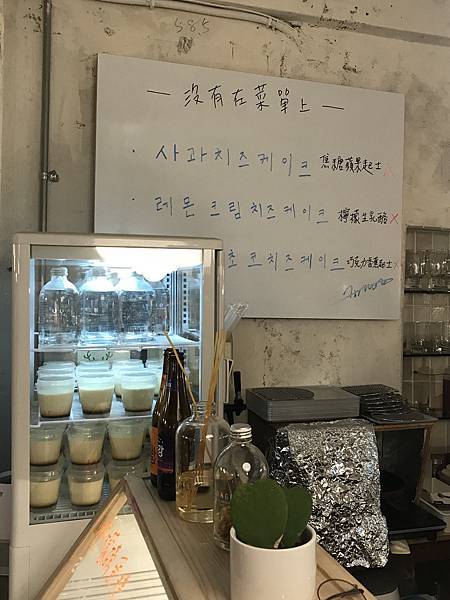 585
— 沒有在菜單上 —
· 사과치즈케이크 焦糖蘋果起士
· 레몬 크림치즈케이크 檸檬生乳酪 ×
초코치즈케이크 巧克力香蕉起士